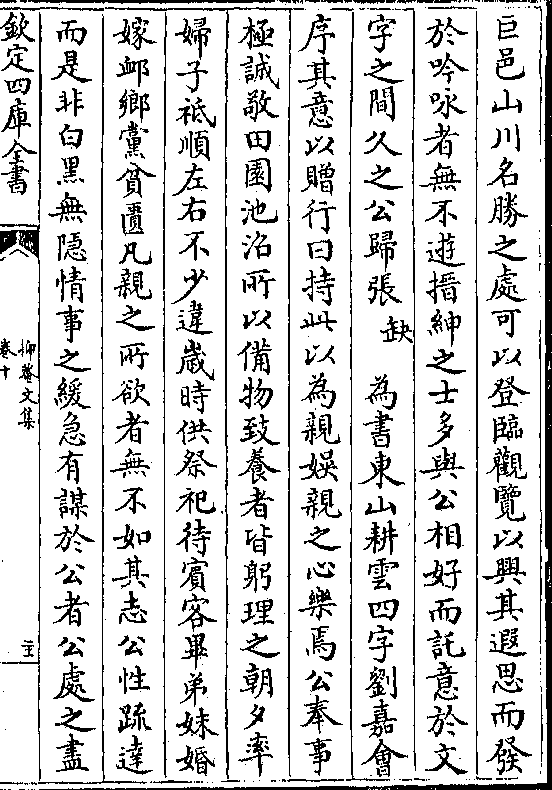 巨邑山川名勝之處可以登臨觀覽以興其遐思而發
於吟咏者無不遊搢紳之士多與公相好而託意於文
字之間久之公歸張缺為書東山耕雲四字劉嘉會
序其意以贈行曰持此以為親娯親之心樂焉公奉事
極誠敬田園池沼所以備物致養者皆躬理之朝夕率
婦子祗順左右不少違歲時供祭祀待賓客畢弟妹婚
嫁䘏鄉黨貧匱凡親之所欲者無不如其志公性踈達
而是非白黒無隠情事之緩急有謀於公者公處之盡
欽定四庫全書
抑菴文集
卷十